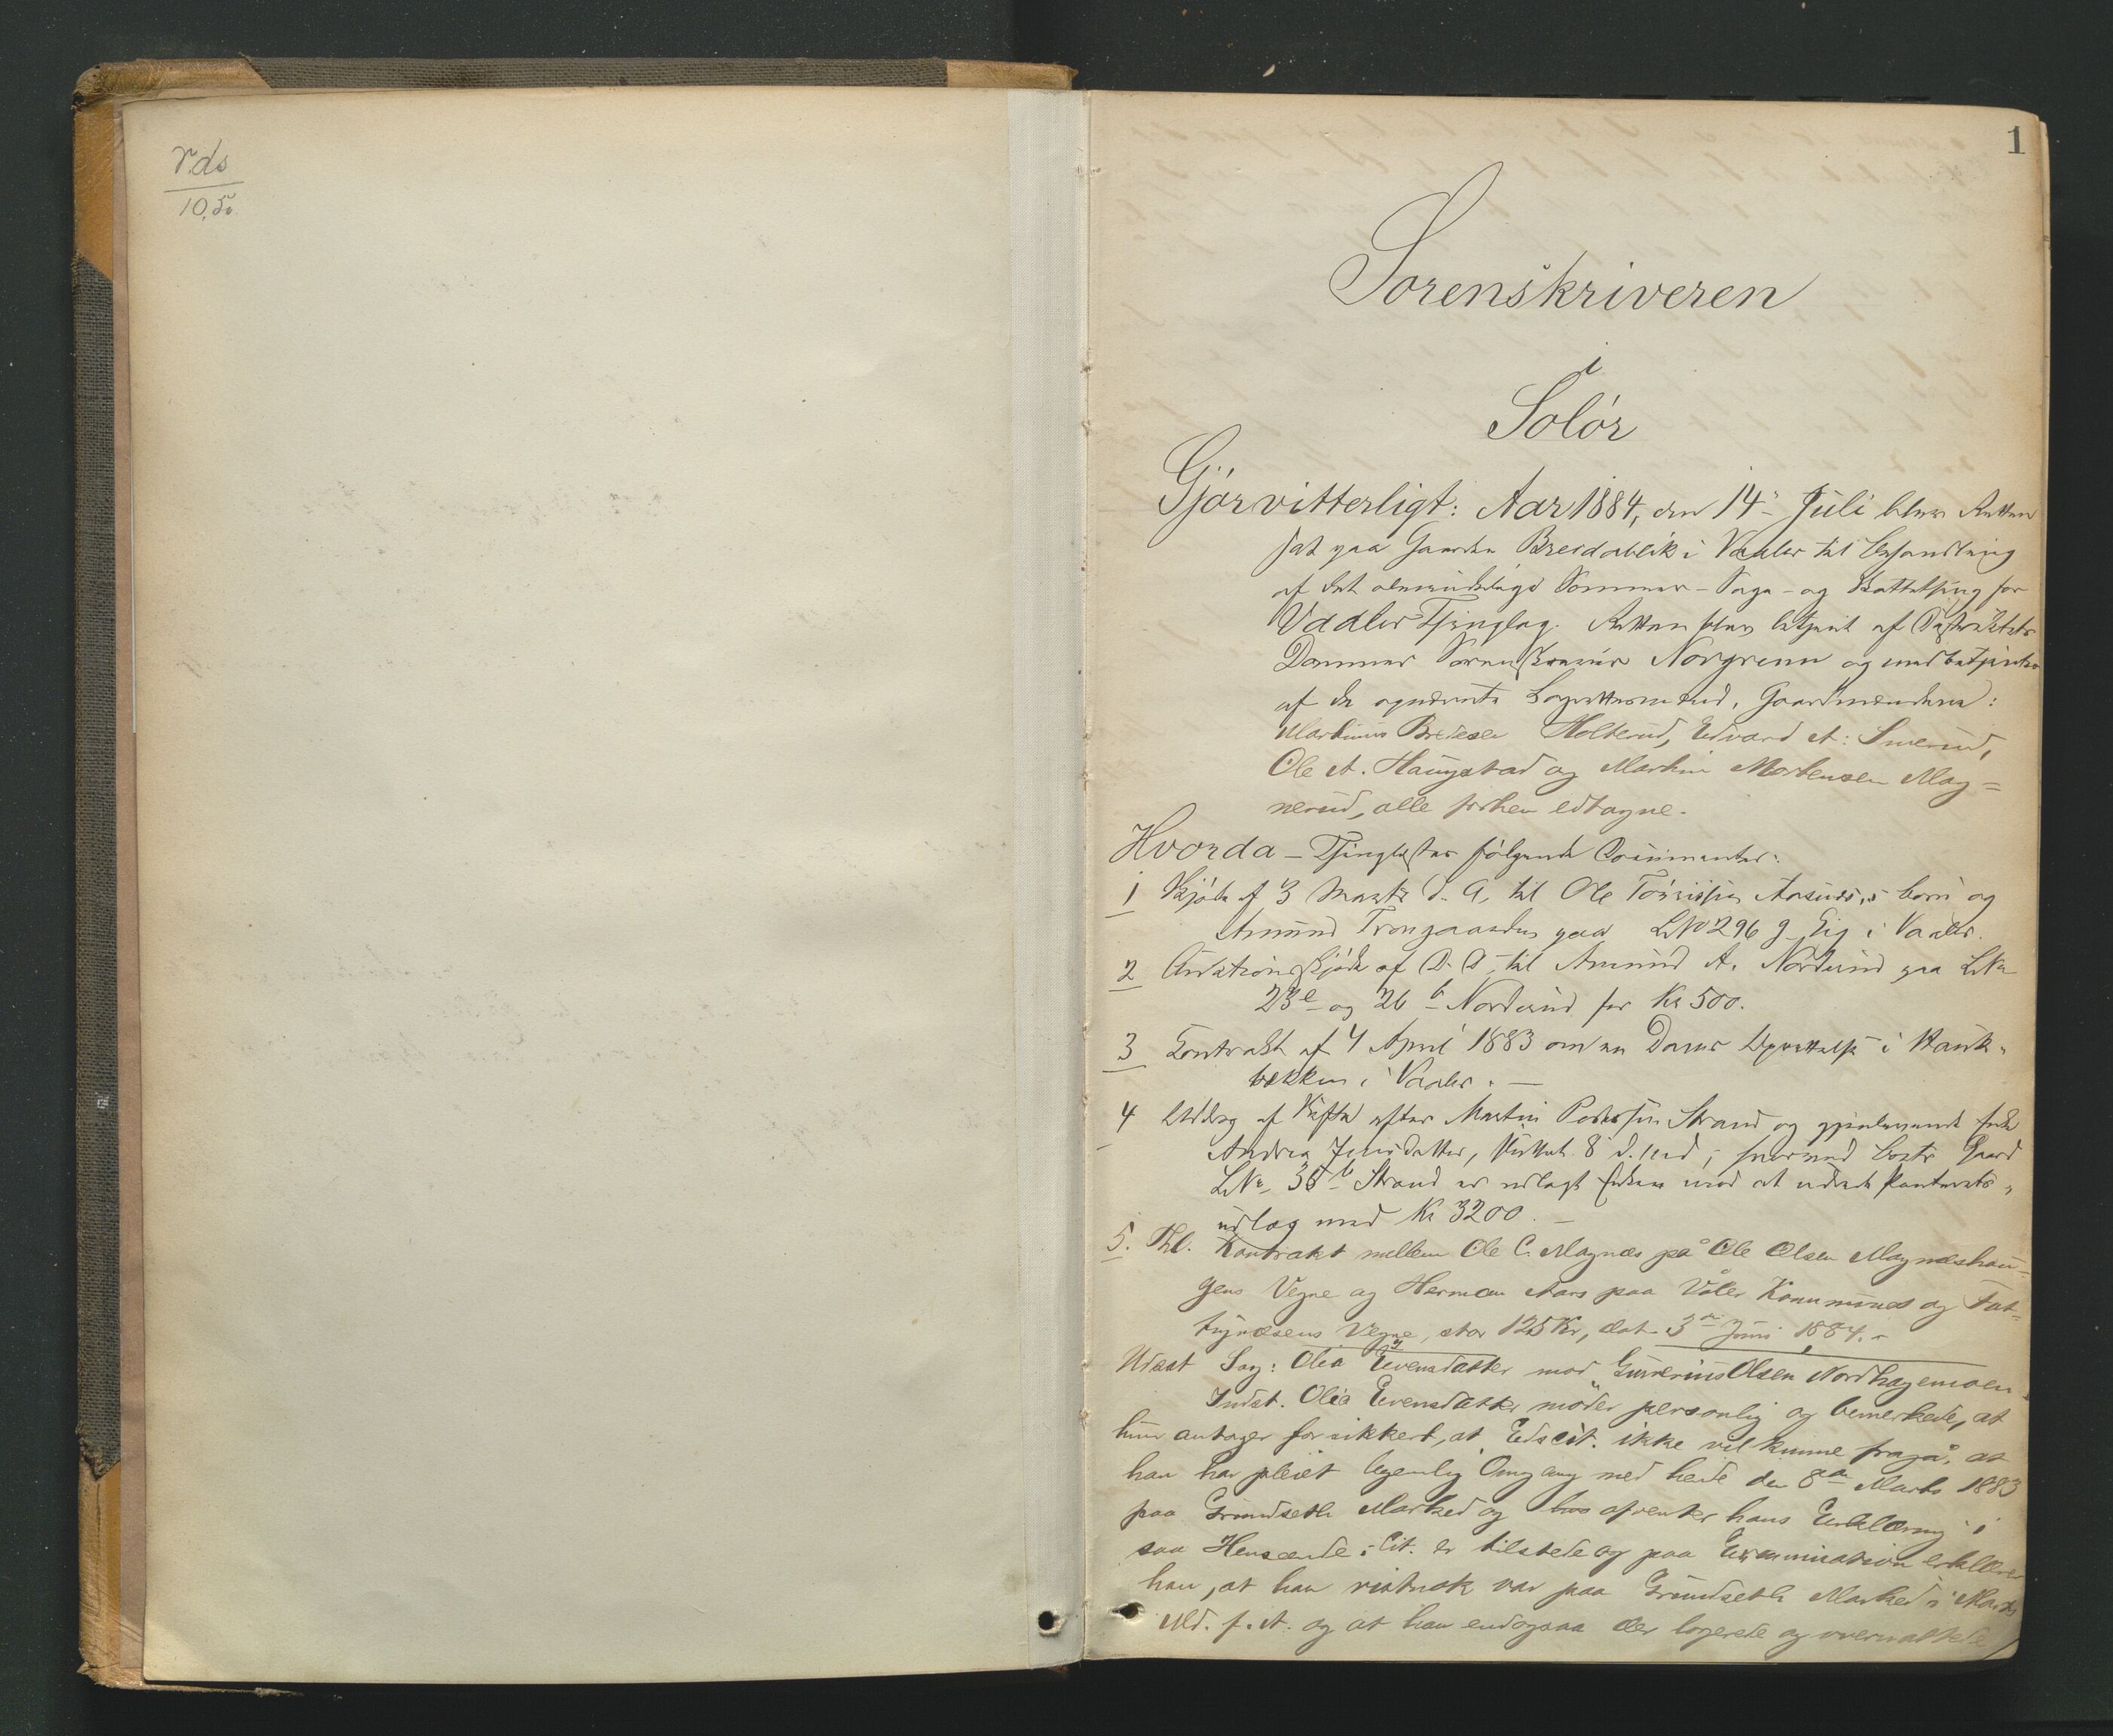 r.ds
10.50
1
Sorenskriveren
i
Solör
Gjör vitterligt: Aar 1884, den 14de Juli blev Retten
sat paa Gaarden Breidablik i Vaaler til Behandling
af det almindelige Sommer-Sage- og Skattething for
Vaaler Thinglag. Retten blev betjent af Distriktets
Dommer Sorenskriver Norgrenn og medbetjentes
af de opnævnte Lagrettesmænd, Gaardmændene:
Martinus Bredesen Holterud, Edvard A. Snerud,
Ole A. Haugstad og Martin Mortensen Mag=
nerud, alle forhen edtagne.
Hvorda – Thinglæstes følgende Documenter:
1 Skjöde af 3 Marts d. A. til Ole og
Amund paa LNo 296 g Eig i Vaaler.
2 Auktionsskjöde af D. D. til Amund A. Norderud paa LNo
23e og 26 b Norderud for Kr 500.
3 Kontrakt af 4 April 1883 om en Dams Oprettelse i
bækken i Vaaler. –
4 Udlæg af Skifte efter Martin Pedersen Strand og gjenlevende Enke
Andrea Jensdatter, sluttet 8 d. Md, hvorved Boets Gaard
LNo 36 b Strand er udlagt Enken mod at udrede
udlæg med Kr 3200. –
5. Thl. Kontrakt mellem Ole C. Magnæs på Ole Olsen Magnæshau=
gens Vegne og Herman Aars paa Våler Kommunes og Fat=
tigvæsens Vegne, stor 125 Kr, dat. 3die Juni 1884. –
Udsat Sag: Olea Evensdatter mod Gunerius Olsen Nordhagemoen.
Indst. Olea Evensdatter möder personlig og bemerkede, at
hun antager forsikkert, at Edscit. ikke vil kunne fragå, at
han har pleiet legemlig Omgang med hende den 8de Marts 1883
paa Grundseth Marked og afventer hans Erklæring i
saa Henseende. Cit. er tilstede og paa Examination erklærer
han, at han vistnok var paa Grundseth Marked i Marts
Md. f. A. og at han endogsaa der logerede og overnattede